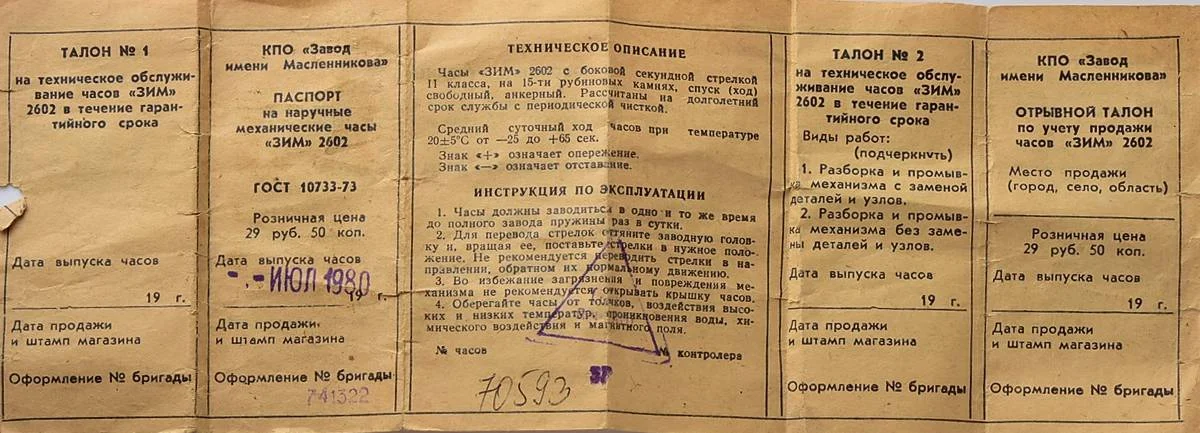 ТАЛОН № 1
на техническое обслужи-
вание часов «ЗИМ»
2602 в течение гаран-
тийного срока
Дата выпуска часов
19 г.
Дата продажи
и штамп магазина
Оформление № бригады
КПО «Завод
имени Масленникова»
ПАСПОРТ
на наручные
механические часы
«ЗИМ» 2602
ГОСТ 10733-73
Розничная цена
29 руб. 50 коп.
Дата выпуска часов
-.- ИЮЛ 1980
19 г.
Дата продажи
и штамп магазина
Оформление № бригады
741322
ТЕХНИЧЕСКОЕ ОПИСАНИЕ
Часы «ЗИМ» 2602 с боковой секундной стрелкой
II класса, на 15-ти рубиновых камнях, спуск (ход)
свободный, анкерный. Рассчитаны на долголетний
срок службы с периодической чисткой.
Средний суточный ход часов при температуре
20±5°С от —25 до +65 сек.
Знак «+» означает опережение.
Знак «—» означает отставание.
ИНСТРУКЦИЯ ПО ЭКСПЛУАТАЦИИ
1. Часы должны заводиться в одно и то же время
до полного завода пружины раз в сутки.
2. Для перевода стрелок оттяните заводную голов-
ку и, вращая ее, поставьте стрелки в нужное поло-
жение. Не рекомендуется переводить стрелки в на-
правлении, обратном их нормальному движению.
3. Во избежание загрязнения и повреждения ме-
ханизма не рекомендуется открывать крышку часов.
4. Оберегайте часы от толчков, воздействия высо-
ких и низких температур, проникновения воды, хи-
мического воздействия и магнитного поля.
№ часов
№ контролера
70593
ТАЛОН № 2
на техническое обслу-
живание часов «ЗИМ»
2602 в течение гаран-
тийного срока
Виды работ:
(подчеркнуть)
1. Разборка и промыв-
ка механизма с заменой
деталей и узлов.
2. Разборка и промыв-
ка механизма без заме-
ны деталей и узлов.
Дата выпуска часов
19 г.
Дата продажи
и штамп магазина
Оформление № бригады
КПО «Завод
имени Масленникова»
ОТРЫВНОЙ ТАЛОН
по учету продажи
часов «ЗИМ» 2602
Место продажи
(город, село, область)
Розничная цена
29 руб. 50 коп.
Дата выпуска часов
19 г.
Дата продажи
и штамп магазина
Оформление № бригады